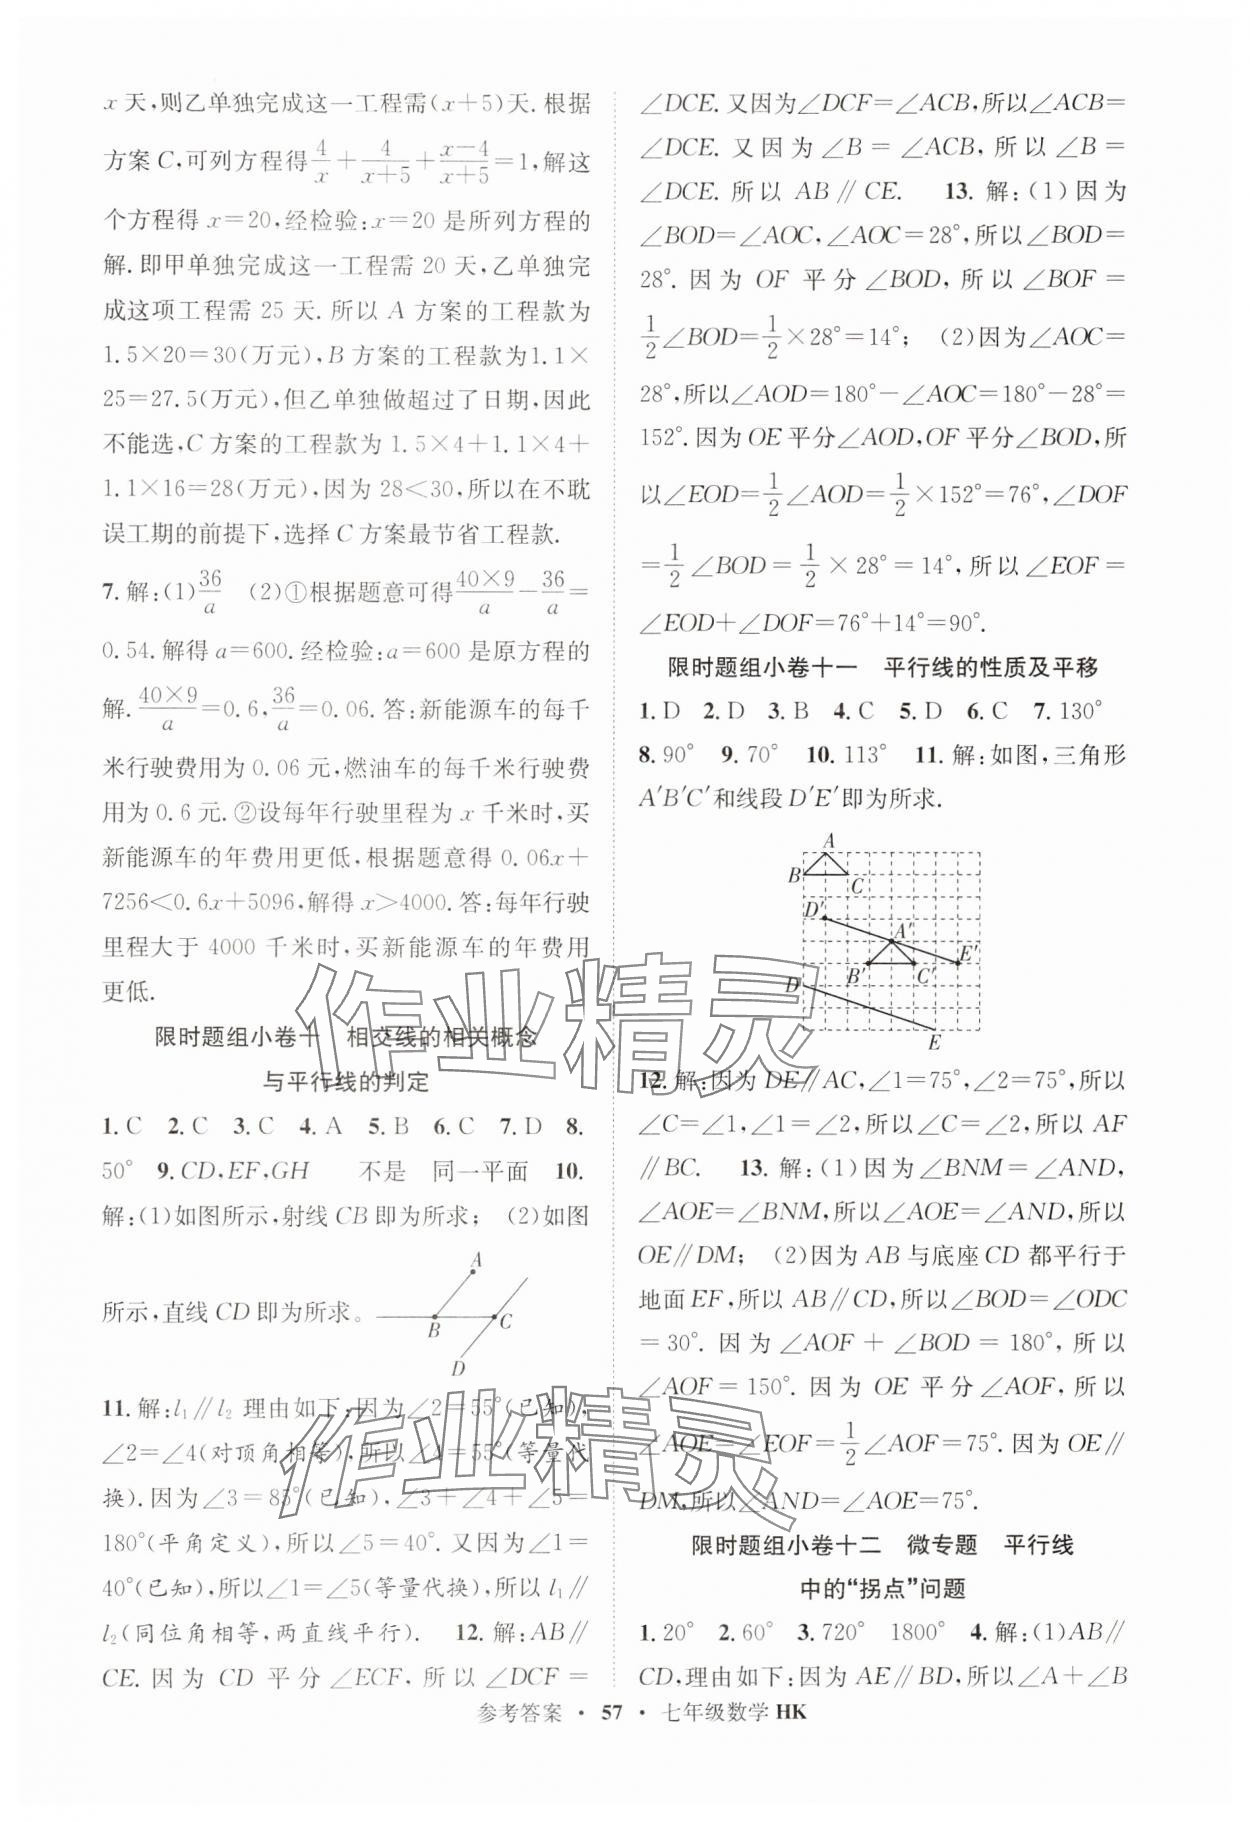 x天,则乙单独完成这一工程需(x+5)天.根据
方案C,可列方程得4/x+4/(x+5)+(x-4)/(x+5)=1,解这
个方程得 x=20,经检验:x=20 是所列方程的
解.即甲单独完成这一工程需 20 天,乙单独完
成这项工程需 25 天.所以 A 方案的工程款为
1.5×20=30(万元),B 方案的工程款为1.1×
25=27.5(万元),但乙单独做超过了日期,因此
不能选,C 方案的工程款为 1.5×4+1.1×4+
1.1×16=28(万元),因为 28<30,所以在不耽
误工期的前提下,选择 C 方案最节省工程款.
7.解:(1)36/a (2)①根据题意可得(40×9)/a-36/a=
0.54.解得 a=600.经检验:a=600 是原方程的
解.(40×9)/a=0.6,36/a=0.06.答:新能源车的每千
米行驶费用为 0.06 元,燃油车的每千米行驶费
用为 0.6 元.②设每年行驶里程为 x 千米时,买
新能源车的年费用更低,根据题意得 0.06x+
7256<0.6x+5096,解得 x>4000.答:每年行驶
里程大于 4000 千米时,买新能源车的年费用
更低.
限时题组小卷十 相交线的相关概念
与平行线的判定
1.C 2.C 3.C 4.A 5.B 6.C 7.D 8.
50° 9.CD,EF,GH 不是 同一平面 10.
解:(1)如图所示,射线 CB 即为所求; (2)如图
所示,直线 CD 即为所求。
A
B
C
D
11.解:l₁∥l₂ 理由如下:因为∠2=55°(已知),
∠2=∠4(对顶角相等),所以∠4=55°(等量代
换).因为∠3=85°(已知),∠3+∠4+∠5=
180°(平角定义),所以∠5=40°.又因为∠1=
40°(已知),所以∠1=∠5(等量代换),所以 l₁∥
l₂(同位角相等,两直线平行). 12.解:AB∥
CE.因为 CD 平分∠ECF,所以∠DCF=
∠DCE.又因为∠DCF=∠ACB,所以∠ACB=
∠DCE.又因为∠B=∠ACB,所以∠B=
∠DCE.所以 AB∥CE. 13.解:(1)因为
∠BOD=∠AOC,∠AOC=28°,所以∠BOD=
28°.因为 OF 平分∠BOD,所以∠BOF=
1/2∠BOD=1/2×28°=14°; (2)因为∠AOC=
28°,所以∠AOD=180°-∠AOC=180°-28°=
152°.因为 OE 平分∠AOD,OF 平分∠BOD,所
以∠EOD=1/2∠AOD=1/2×152°=76°,∠DOF
=1/2∠BOD=1/2×28°=14°,所以∠EOF=
∠EOD+∠DOF=76°+14°=90°.
限时题组小卷十一 平行线的性质及平移
1.D 2.D 3.B 4.C 5.D 6.C 7.130°
8.90° 9.70° 10.113° 11.解:如图,三角形
A′B′C′和线段 D′E′即为所求.
A
B
C
D′
A′
B′
C′
E′
D
E
12.解:因为 DE∥AC,∠1=75°,∠2=75°,所以
∠C=∠1,∠1=∠2,所以∠C=∠2,所以 AF
∥BC. 13.解:(1)因为∠BNM=∠AND,
∠AOE=∠BNM,所以∠AOE=∠AND,所以
OE∥DM; (2)因为 AB 与底座 CD 都平行于
地面 EF,所以 AB∥CD,所以∠BOD=∠ODC
=30°.因为∠AOF+∠BOD=180°,所以
∠AOF=150°.因为 OE 平分∠AOF,所以
∠AOE=∠EOF=1/2∠AOF=75°.因为 OE∥
DM,所以∠AND=∠AOE=75°.
限时题组小卷十二 微专题 平行线
中的“拐点”问题
1.20° 2.60° 3.720° 1800° 4.解:(1)AB∥
CD,理由如下:因为 AE∥BD,所以∠A+∠B
参考答案 · 57 · 七年级数学 HK
作业精灵
作业精灵